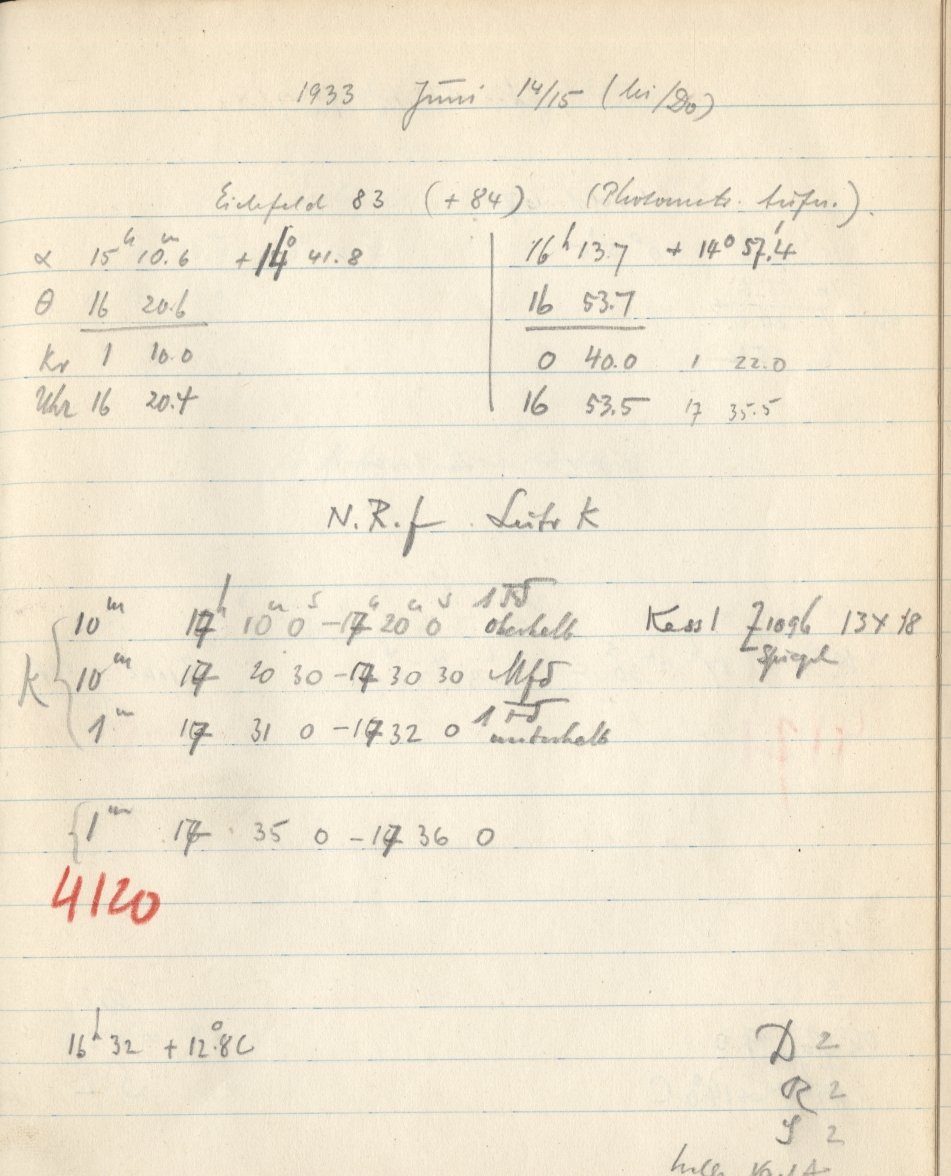 1933 Juni 14/15 (Mi/Do)
Eichfeld 83 (+84) (Photometr. Aufn.)
α 15ʰ 10ᵐ.6 +14° 41.8
θ 16 20.6
Kr 1 10.0
Uhr 16 20.4
16ʰ 13.7 + 14° 57'.4
16 53.7
0 40.0 1 22.0
16 53.5 17 35.5
N.R.f Leitr K
K
10ᵐ 17ʰ 10ᵐ 0ˢ – 17ʰ 20ᵐ 0ˢ 1 Fd oberhalb Kass 1 Z 1096 13X18 Spiegel
10ᵐ 17 20 30 – 17 30 30 Mfd
1ᵐ 17 31 0 – 17 32 0 1 Fd unterhalb
1ᵐ 17 35 0 – 17 36 0
4120
16ʰ 32 + 12°.8
D 2
R 2
S 2